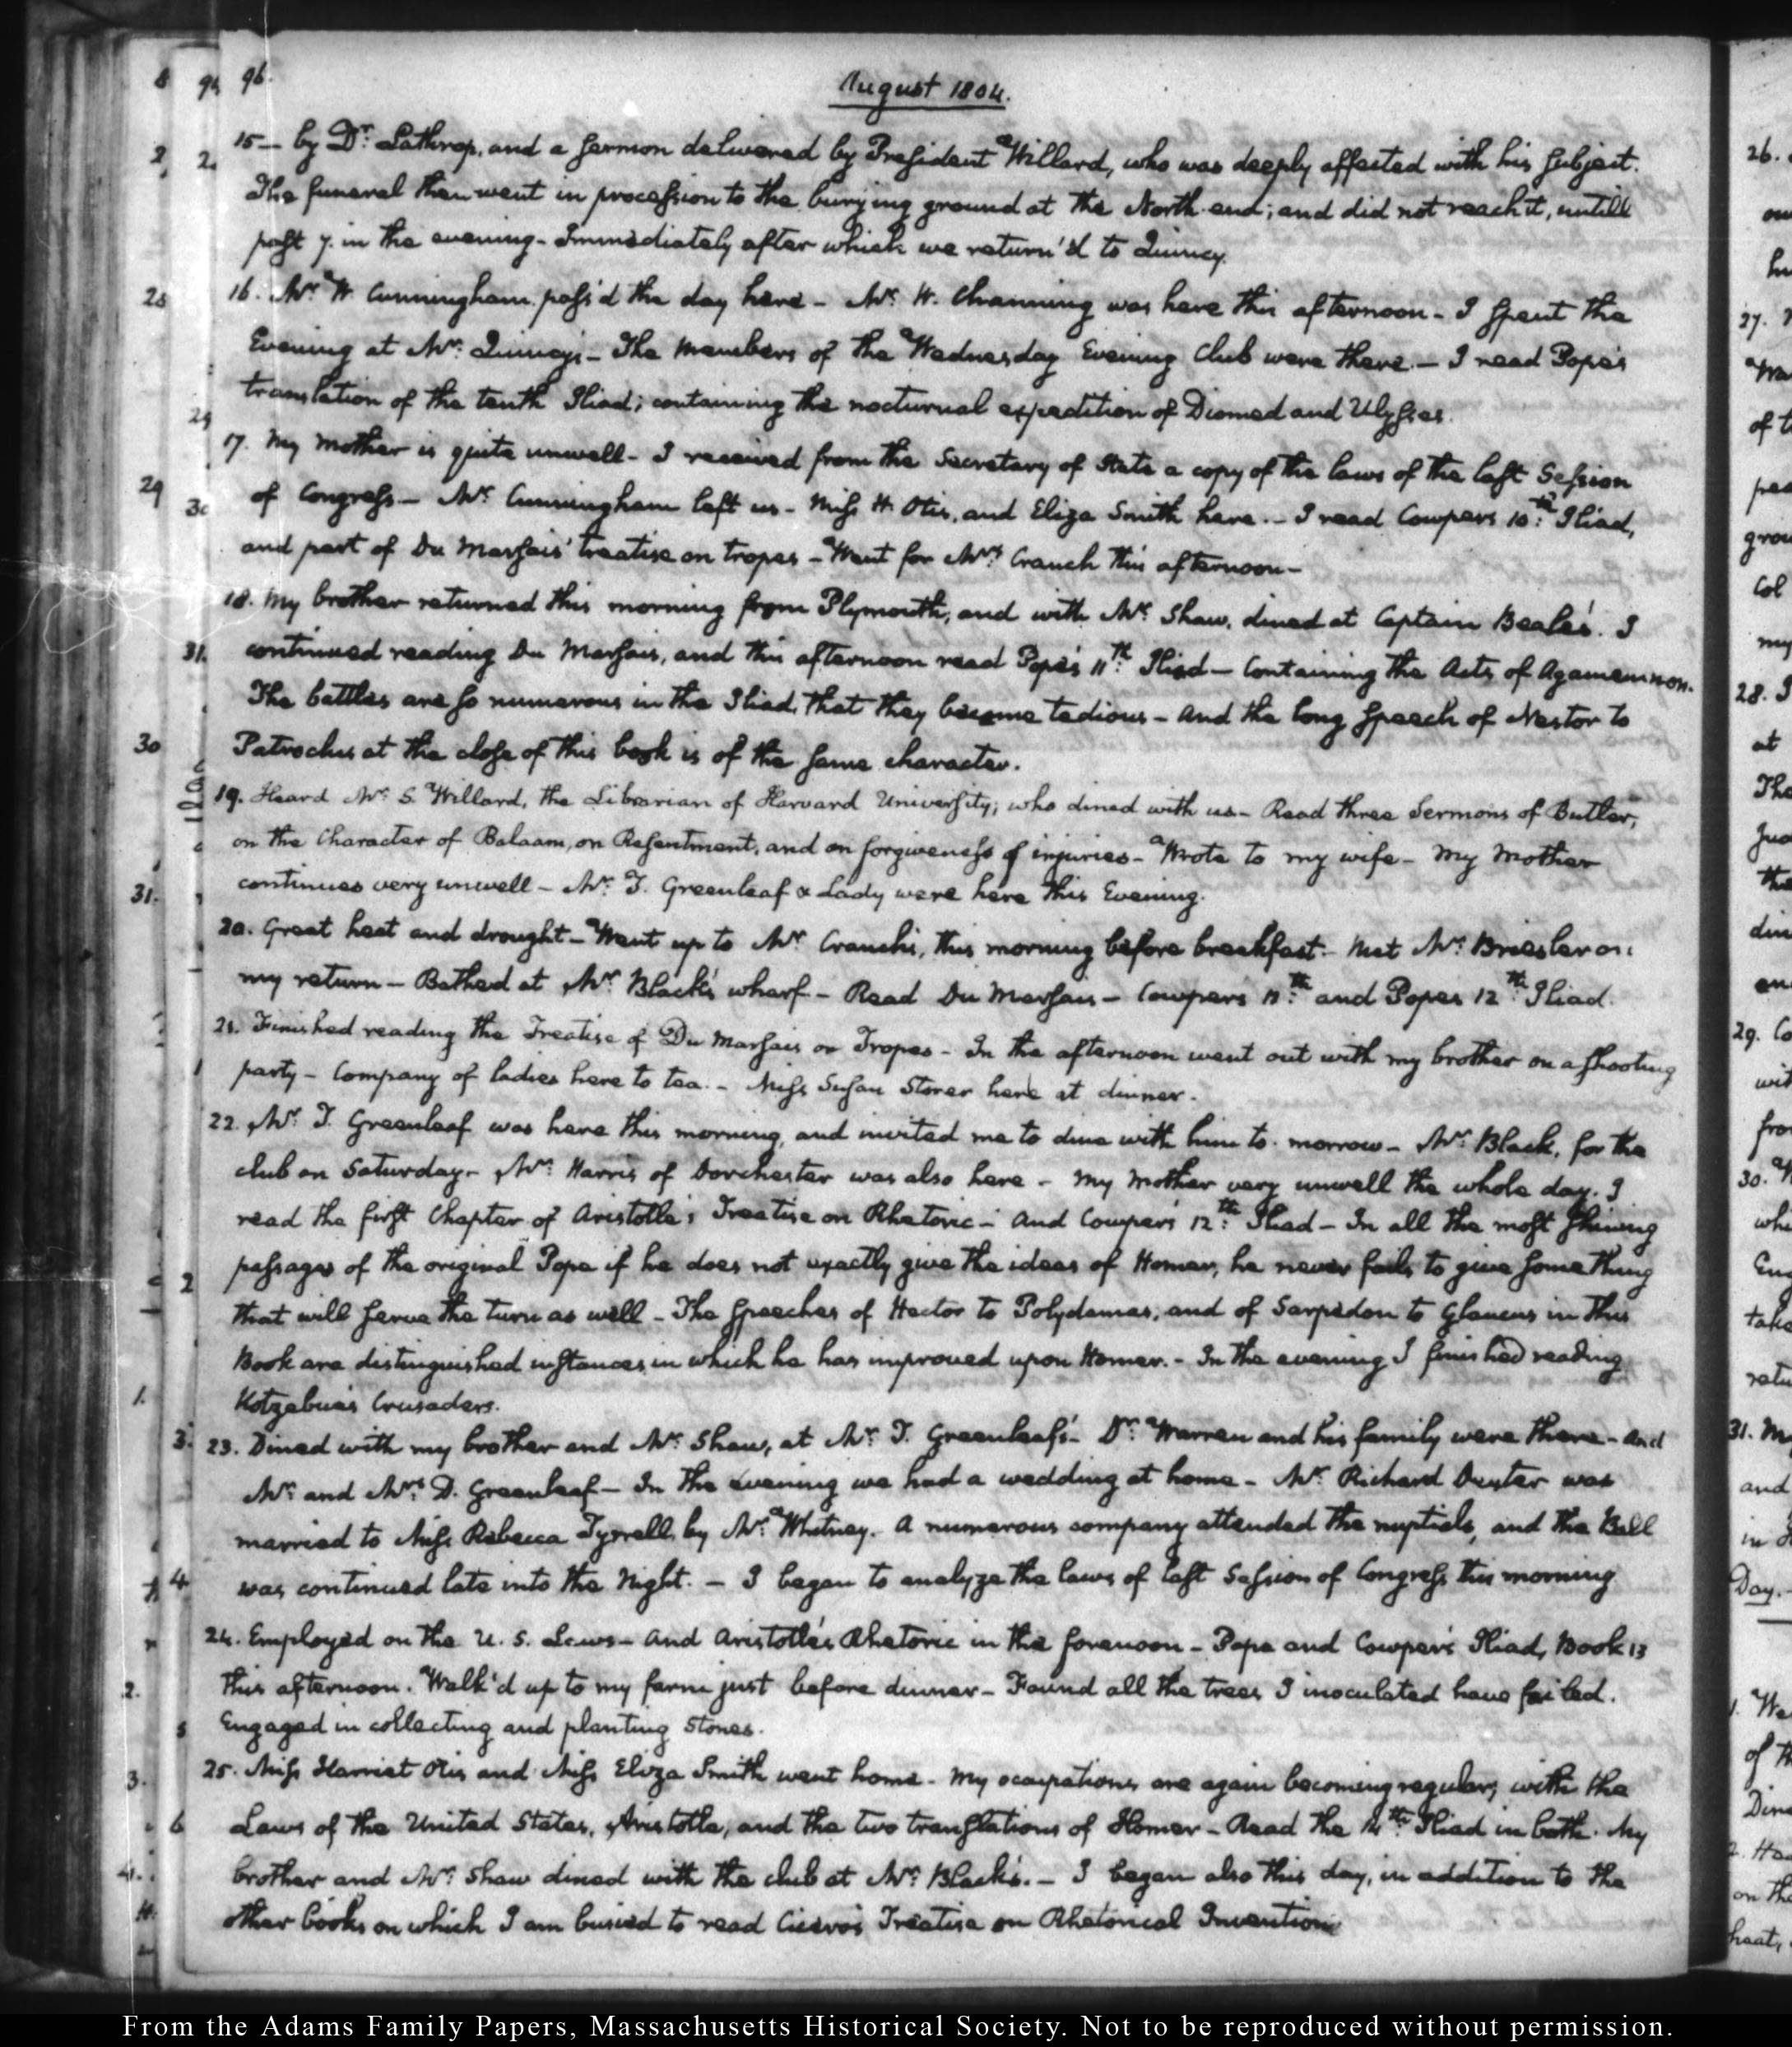 96.
August 1804.
15— by Dr. Lathrop, and a sermon delivered by President Willard, who was deeply affected with his subject.
The funeral then went in procession to the burying ground at the North-end; and did not reach it, untill
past 7. in the evening— Immediately after which we return'd to Quincy.
16. Mr. W. Cunningham pass'd the day here— Mr. W. Channing was here this afternoon— I spent the
Evening at Mr. Quincy's— The members of the Wednesday Evening Club were there.— I read Pope's
translation of the tenth Iliad; containing the nocturnal expedition of Diomed and Ulysses.
17. My Mother is quite unwell— I received from the Secretary of State a copy of the laws of the last Session
of Congress— Mr. Cunningham left us— Miss H. Otis, and Eliza Smith here.— I read Cowpers 10th. Iliad,
and part of Du Marsais' treatise on tropes— Went for Mrs. Cranch this afternoon—
18. My brother returned this morning from Plymouth, and with Mr. Shaw, dined at Captain Beale's. I
continued reading Du Marsais, and this afternoon read Pope's 11th. Iliad— Containing the Acts of Agamemnon.
The battles are so numerous in the Iliad, that they become tedious— And the long speech of Nestor to
Patroclus at the close of this book is of the same character.
19. Heard Mr. S. Willard, the Librarian of Harvard University; who dined with us— Read three Sermons of Butler,
on the Character of Balaam, on Resentment, and on forgiveness of injuries— Wrote to my wife— My Mother
continues very unwell— Mr. T. Greenleaf & Lady were here this Evening.
20. Great heat and drought— Went up to Mr. Cranch's, this morning before breakfast— Met Mr. Briesler on
my return— Bathed at Mr. Black's wharf— Read Du Marsais— Cowpers 11th. and Popes 12th. Iliad.
21. Finished reading the Treatise of Du Marsais on Tropes— In the afternoon went out with my brother on a shooting
party— Company of ladies here to tea.— Miss Susan Storer here at dinner.
22. Mr. T. Greenleaf was here this morning, and invited me to dine with him to-morrow— Mr. Black, for the
club on Saturday— Mr. Harris of Dorchester was also here— My Mother very unwell the whole day. I
read the first Chapter of Aristotle's Treatise on Rhetoric— And Cowper's 12th. Iliad— In all the most shining
passages of the original Pope if he does not exactly give the ideas of Homer, he never fails to give something
that will serve the turn as well— The speeches of Hector to Polydamas, and of Sarpedon to Glaucus in this
Book are distinguished instances in which he has improved upon Homer.— In the evening I finished reading
Kotzebue's Crusaders.
23. Dined with my brother and Mr. Shaw, at Mr. T. Greenleaf's— Dr. Warren and his family were there— And
Mr. and Mrs. D. Greenleaf— In the evening we had a wedding at home— Mr. Richard Dexter was
married to Miss Rebecca Tyrrell, by Mr. Whitney. A numerous company attended the nuptials, and the Ball
was continued late into the Night.— I began to analyze the laws of last Session of Congress this morning
24. Employed on the U. S. Laws— And Aristotle's Rhetoric in the forenoon— Pope and Cowper's Iliad, Book 13
this afternoon. Walk'd up to my farm just before dinner— Found all the trees I inoculated have failed.
Engaged in collecting and planting stones.
25. Miss Harriet Otis and Miss Eliza Smith went home— My occupations are again becoming regular; with the
Laws of the United States, Aristotle, and the two translations of Homer— Read the 14th. Iliad in both. My
brother and Mr. Shaw dined with the club at Mr. Black's.— I began also this day, in addition to the
other books on which I am busied to read Cicero's Treatise on Rhetorical Invention
From the Adams Family Papers, Massachusetts Historical Society. Not to be reproduced without permission.